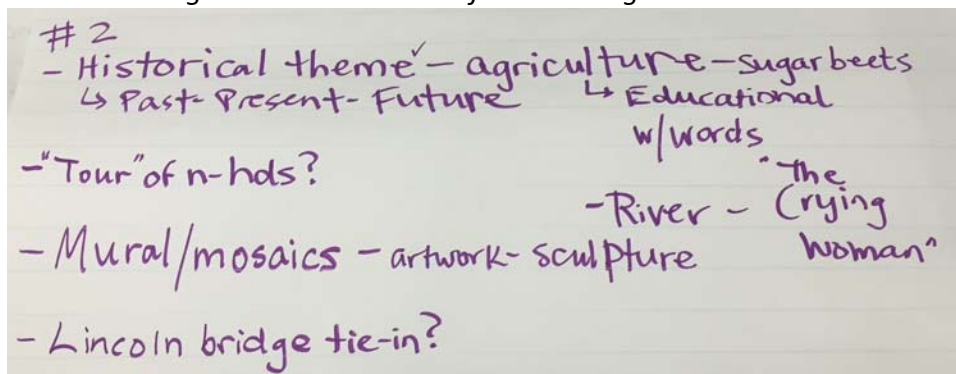 #2
- Historical theme✓ - agriculture - sugar beets
↳ Past - Present - Future ↳ Educational
w/words
- "Tour" of n-hds?
- River - "The
Crying
Woman"
- Mural/mosaics - artwork - sculpture
- Lincoln bridge tie-in?